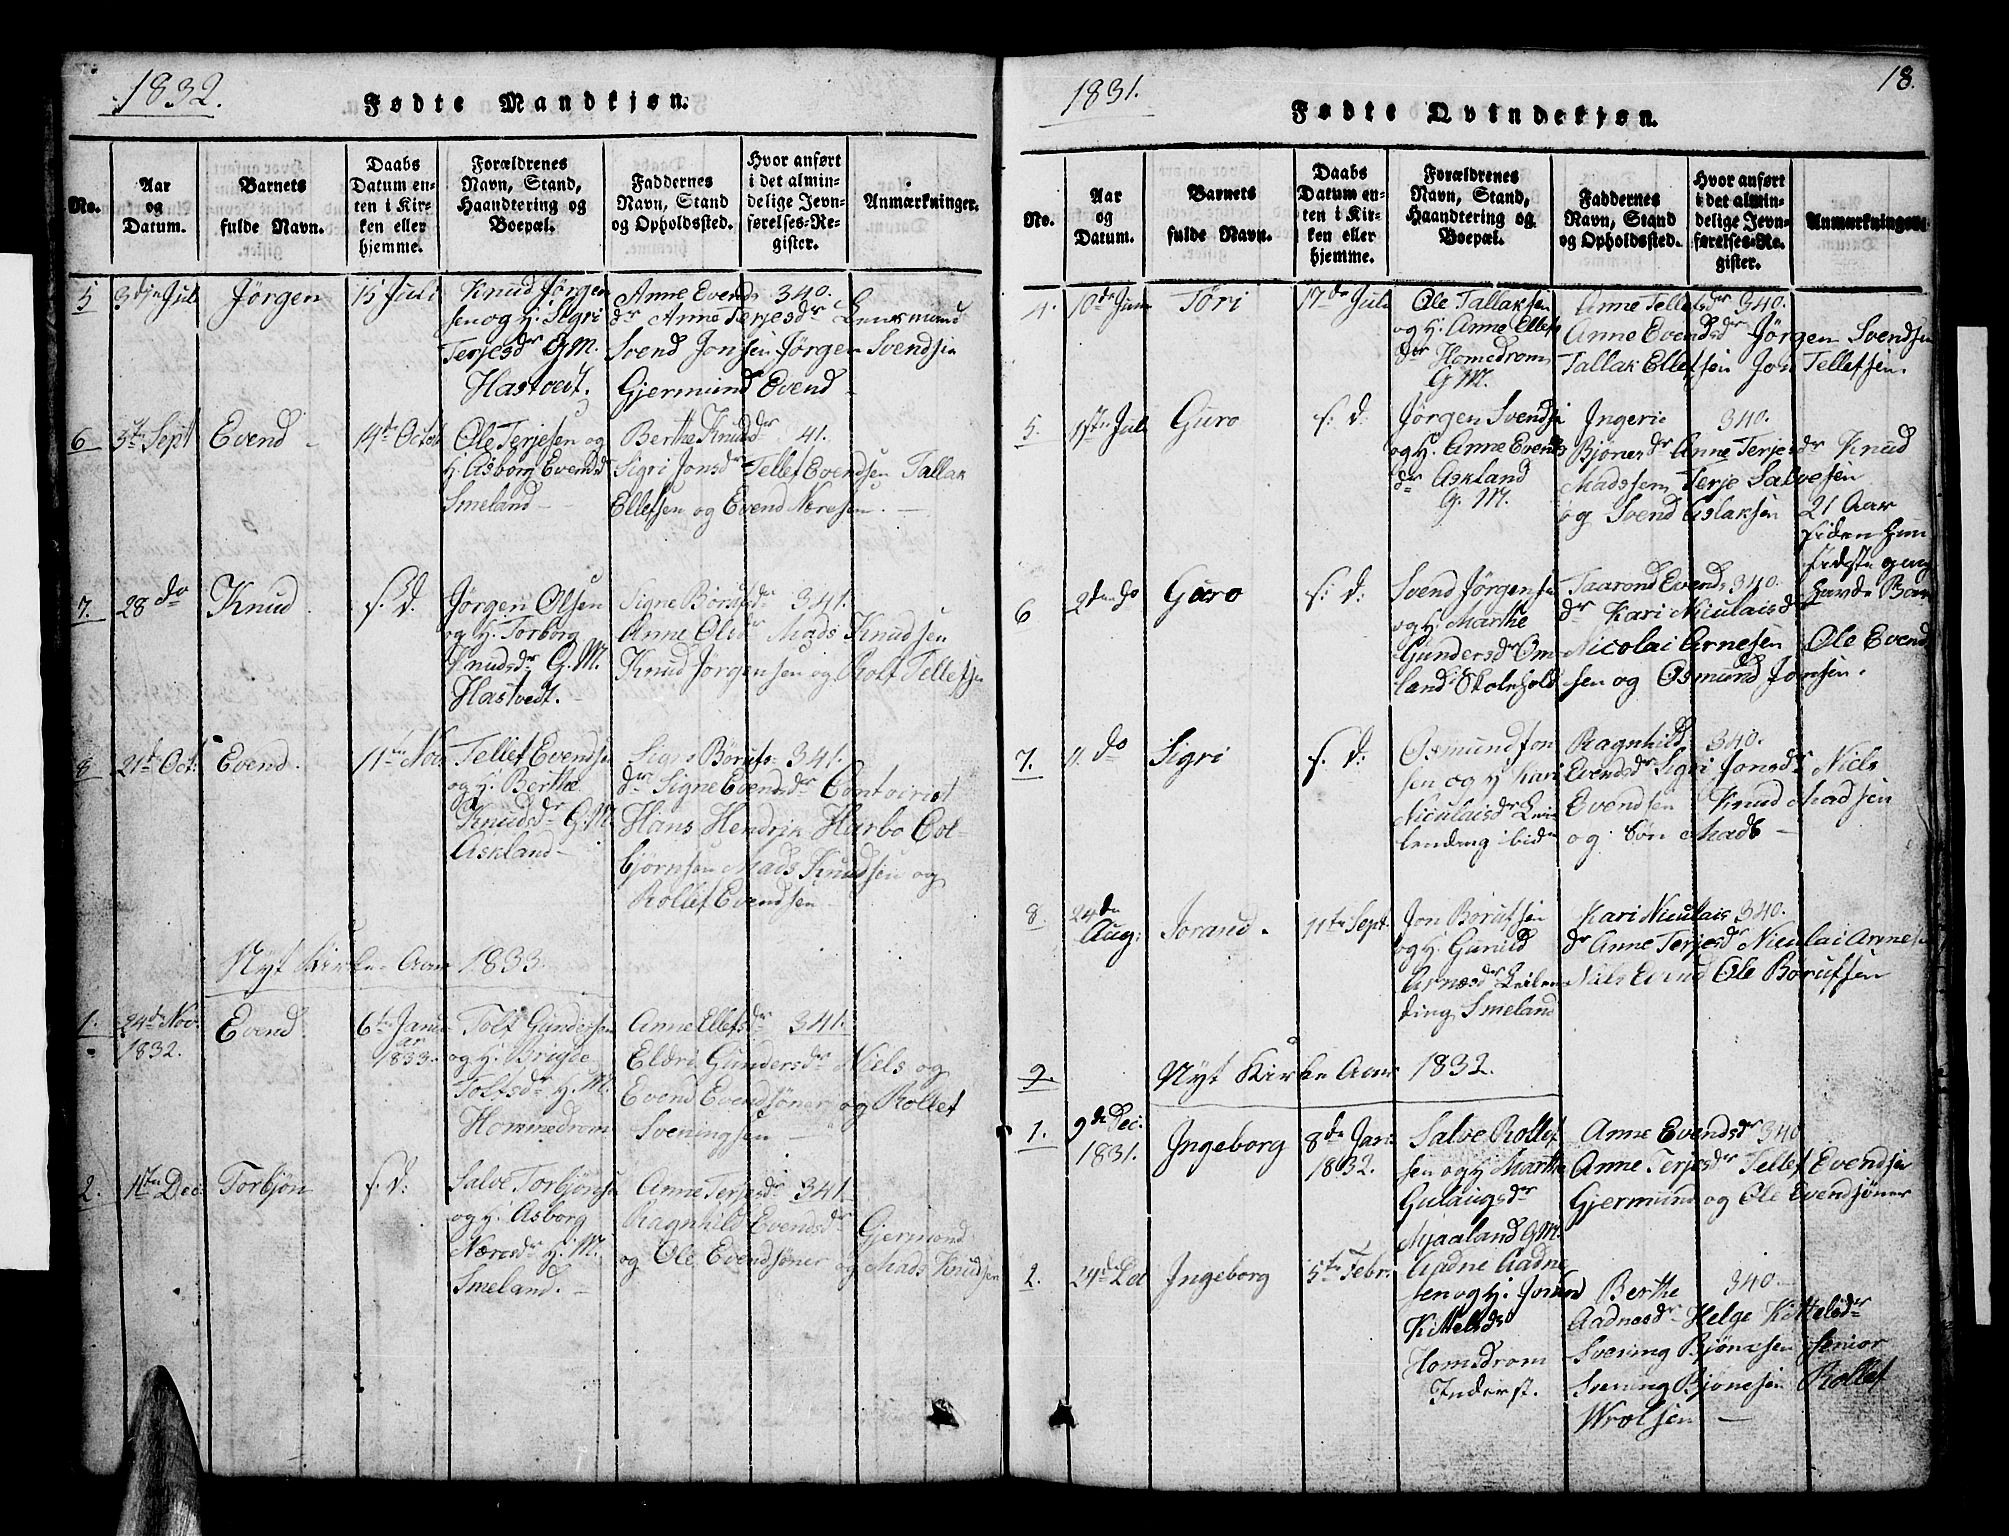 1832.
Fødte Mandkjøn.
No.
Aar
og
Datum.
Barnets
fulde Navn.
Daabs
Datum en-
ten i Kir-
ken eller
hjemme.
Forældrenes
Navn, Stand,
Haandtering og
Boepæl.
Faddernes
Navn, Stand
og Opholdssted.
Hvor anført
i det almin-
delige Jevn-
førelses-Re-
gister.
Anmærkninger.
5
3die Jul
Jørgen
15 Juli
Knud Jørgen
sen og H. Sigri
Terjesdr G. M.
Hastvedt.
Anne Evends 340.
dr Anne Terjesdr Lensmand
Svend Jonsen Jørgen Svendsen
Gjermund Evend
6
5te Sept
Evend
14de Octob
Ole Terjesen og
H. Asborg Evends
Smeland
Berthe Knudsdr 41.
Sigri Jonsdr Tellef Evendsen Tallak
Ellefsen og Evend Næresen.
7.
28 do
Knud
s. D.
Jørgen Olsen
og H. Torborg
Knudsdr G. M.
Hastvedt.
Signe Børufsdr 341.
Anne Olsdr Mads Knudsen
Knud Jørgensen og Rolf Tellefsen
8
21de Oct.
Evend.
11te Nov
Tellef Evendsen
og H. Berthe
Knudsdr G. M.
Askland
Signe Børufs- 341.
dr Signe Evendsdr Contoirist
Hans Hendrik Harbo Col-
bjørnsen Mads Knudsen og
Rollef Evendsen
Nyt Kirke-Aar 1833.
1.
24de Nov.
1832.
Evend
6te Janu
ar
1833.
Tolf Gundersen
og H. Brigde
Tolfsdr H. M.
Hommedrom
Anne Ellefsdr 341.
Eldri Gundersdr Niels og
Evend Evendsøner og Rollef
Sveningsen
2.
1te Dec.
Torbjøn
s. D.
Salve Torbjønse
og H. Asborg
Næresdr H. M.
Smeland.
Anne Terjesdr 341.
Ragnhild Evendsdr Gjermond
og Ole Evendsøner og Mads Knudsen
1831.
18.
Fødte Qvindekjøn.
No.
Aar
og
Datum.
Barnets
fulde Navn.
Daabs
Datum en-
ten i Kir-
ken eller
hjemme.
Forældrenes
Navn, Stand,
Haandtering og
Boepæl.
Faddernes
Navn, Stand
og Opholdssted.
Hvor anført
i det almin-
delige Jevn-
førelses-Re-
gister.
Anmærkninger.
4.
10de Juni
Tøri
17de Juli
Ole Tallaksen
og H. Anne Ellefs
dr Homedrom
G. M.
Anne Tellefsdr 340.
Anne Evendsdr Jørgen Svendsen
Tallak Ellefsen Jon Tellefsen.
5.
1ste Jul
Guro
s. d:
Jørgen Svendse
og H. Anne Evends
dr Askland
G. M.
Ingerie 340.
Bjønesdr Anne Terjesdr Knud
Madssen Terje Salvesen
og Svend Aslaksen
21 Aar
siden hun
sidste gang
havde Barn
6
2den do
Guro
s. d:
Svend Jørgense
og H. Marthe
Gundersdr Om
land Skolehold
Taarond Evends 340.
dr Kari Niculaisdr
Nicolai Arnesen Ole Evend
sen og Osmund Jonsen.
7.
11. do
Sigri
s. d:
Osmund Jon
sen og H. Kari
Niculaisdr Lei
lending ibid
Ragnhild 340.
Evendsdr Sigri Jonsdr Niels
Evendsen Knud Madsen
og Søn Mads
8.
24de
Aug:
Jorand.
11te Sept.
Jon Børufsen
og H. Gunild
Arnesdr Leilen
ding Smeland
Kari Niculais 340.
dr Anne Terjesdr Niculai Arnese
Niels Evend Ole Børufsen
9.
Nyt Kirke Aar 1832.
1.
9de Dec.
1831.
Ingeborg
8de Jan.
1832.
Salve Rollef
sen og H Marthe
Gulaugsdr
Mjaaland G. M.
Anne Evendsdr 340
Anne Terjesdr Tellef Evendsen
Gjermund og Ole Evendsøner
2.
24de Do
Ingeborg
5te Febr.
Aadne Aadne
sen og H. Jorand
Kittelsdr
Homedrom
Inderst.
Berthe 340.
Aadnesdr Helge Kittelsdr
Svening Bjønesen senior
Svening Bjønesen Rollef
Wrolsen